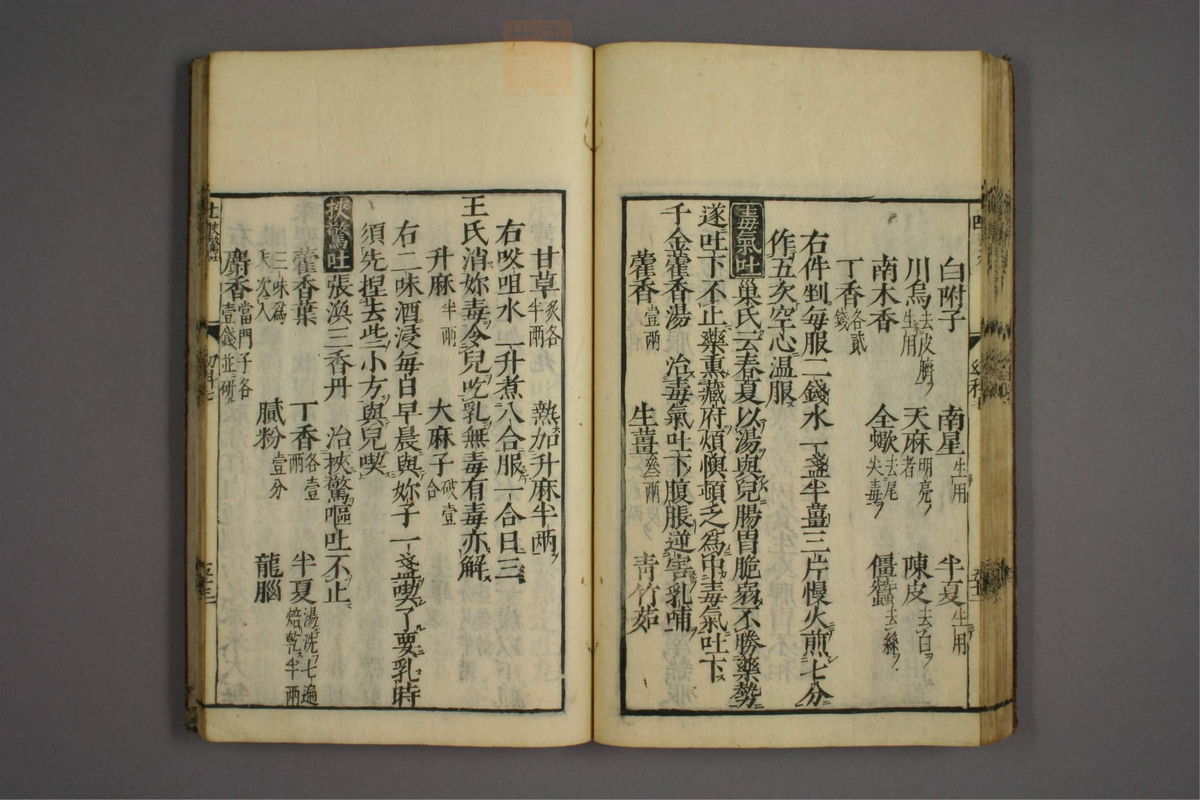 白附子 南星生用 半夏生用
川烏去皮臍生用 天麻明亮者 陳皮去白
南木香 全蠍去尾尖毒 僵蠶去絲
丁香各貳錢
右件剉每服二錢水一盞半薑三片慢火煎七分
作五次空心溫服
毒氣吐 巢氏云春夏以湯與兒腸胃脆弱不勝藥勢
遂吐下不止藥熏藏府煩懊頓乏為中毒氣吐下
千金藿香湯 治毒氣吐下腹脹逆害乳哺
藿香壹兩 生薑叁兩 青竹茹
甘草炙各半兩 熱加升麻半兩
右㕮咀水一升煮八合服一合日三
王氏消妳毒令兒吃乳無毒有毒亦解
升麻半兩 大麻子破壹合
右二味酒浸每日早晨與妳子一盞喫了要乳時
須先捏去些小方與兒喫
挾驚吐 張渙三香丹 治挾驚嘔吐不止
藿香葉 丁香各壹兩 半夏湯洗七遍焙乾半兩
三味為末次入
麝香當門子各壹錢並研 膩粉壹分 龍腦